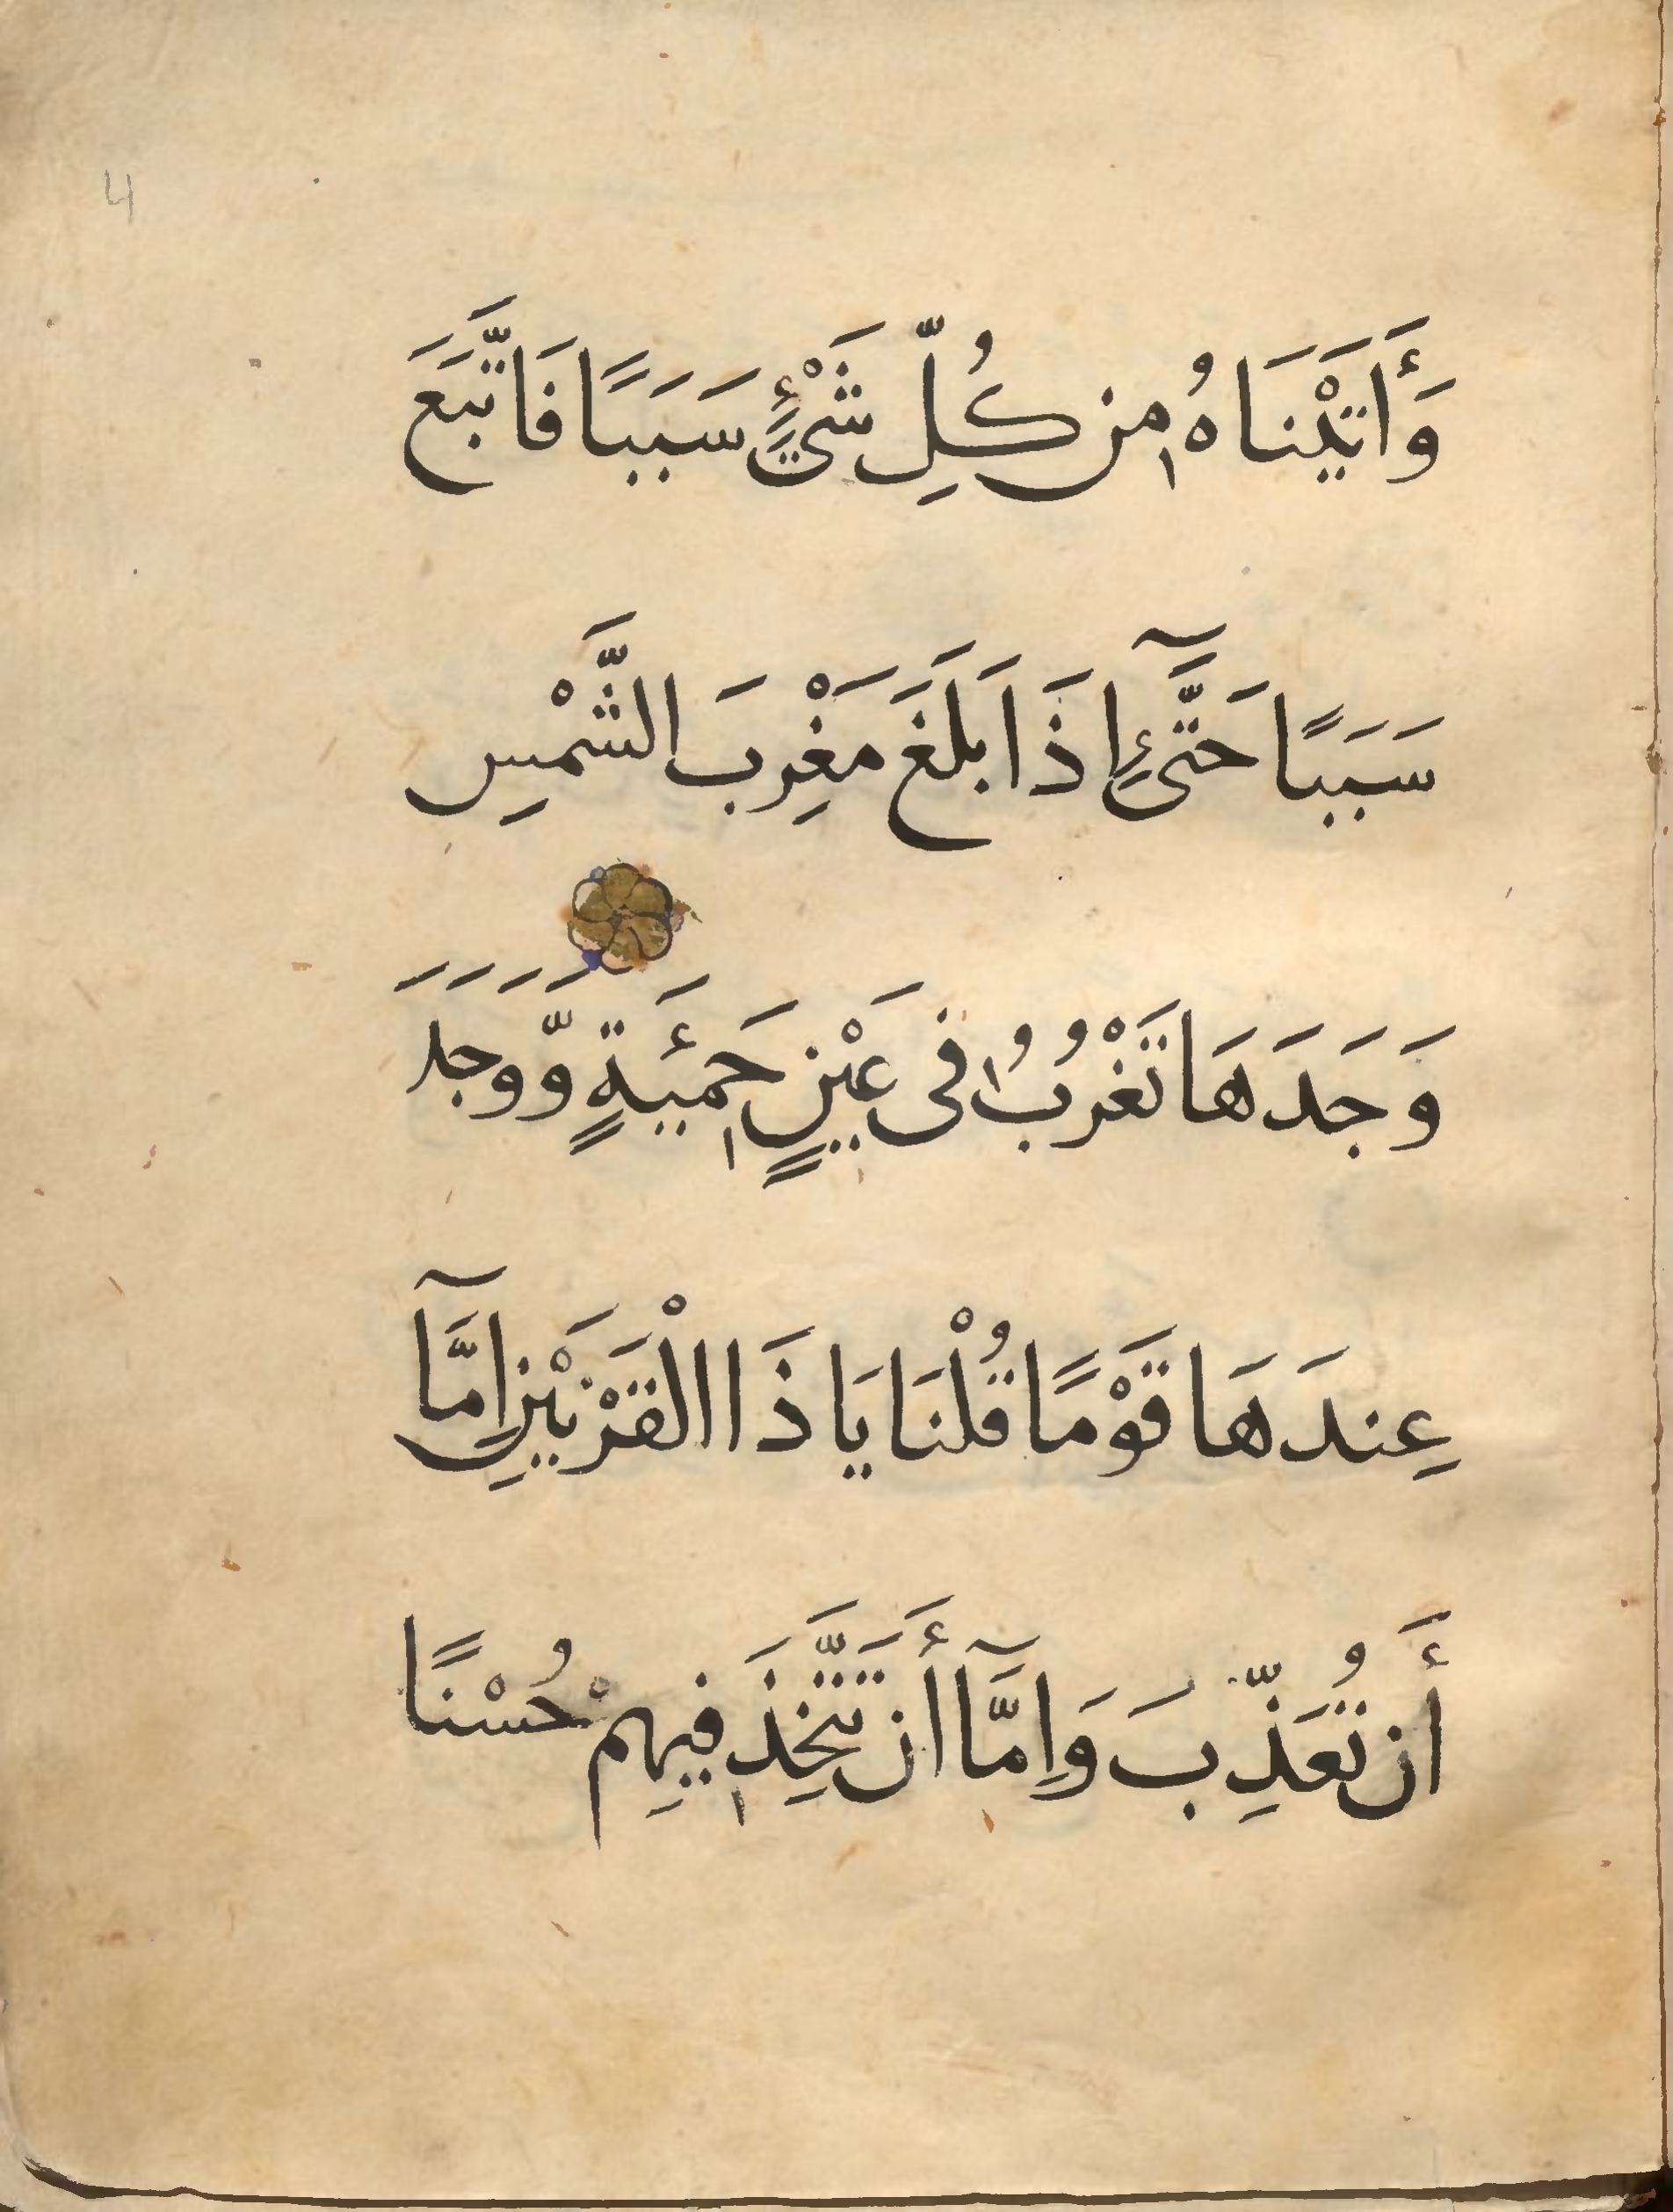 4
وَأَاتَيْنَاهُ مِن كُلِّ شَيْءٍ سَبَبًا فَاتَّبَعَ
سَبَبًا حَتَّىٰٓ إِذَا بَلَغَ مَغْرِبَ الشَّمْسِ
وَجَدَهَا تَغْرُبُ فِى عَيْنٍ حَمِئَةٍ وَّوَجَدَ
عِندَهَا قَوْمًا قُلْنَا يَا ذَا الْقَرْنَيْنِ إِمَّآ
أَن تُعَذِّبَ وَإِمَّآ أَن تَتَّخِذَ فِيهِمْ حُسْنًا